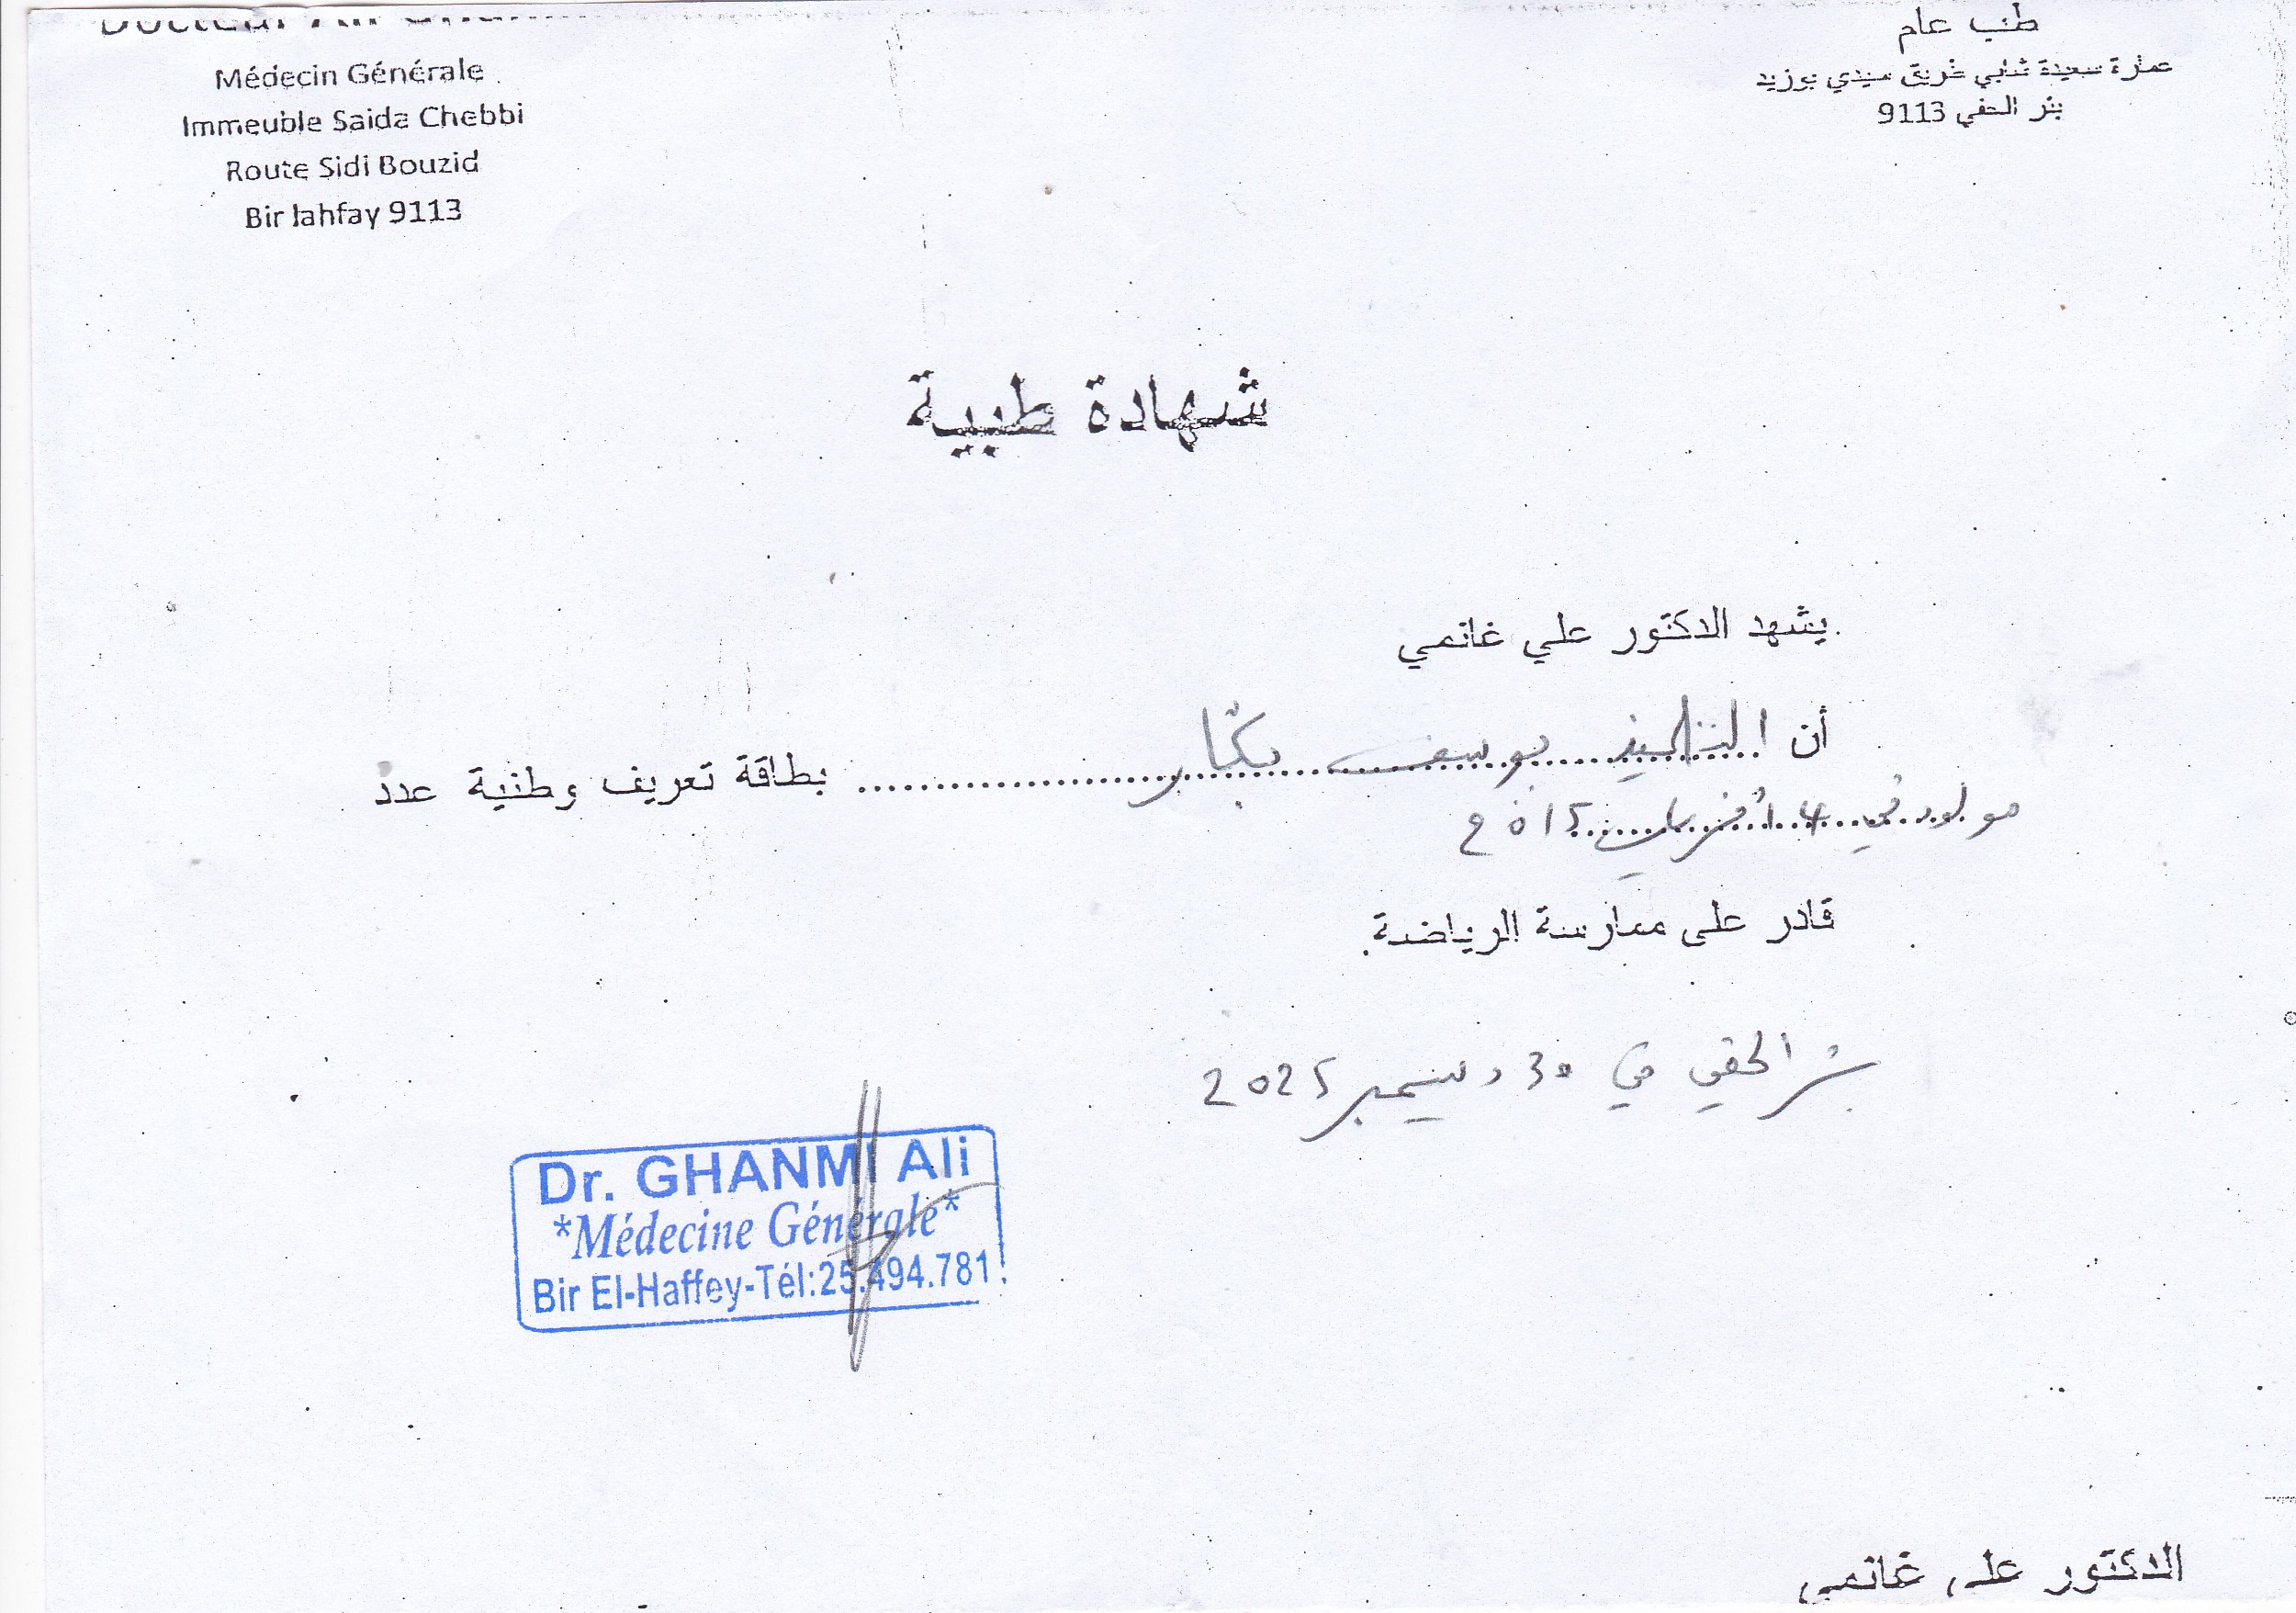 Docteur Ali
Médecin Générale
Immeuble Saida Chebbi
Route Sidi Bouzid
Bir lahfay 9113
طب عام
عمارة سعيدة شابي طريق سيدي بوزيد
بئر الحفي 9113
شهادة طبية
يشهد الدكتور علي غانمي
أن التلميذ يوسف بكار بطاقة تعريف وطنية عدد
مولود في 14 أفريل 2015
قادر على ممارسة الرياضة.
بئر الحفي في 30 ديسمبر 2025
Dr. GHANMI Ali
*Médecine Générale*
Bir El-Haffey-Tél:25.494.781
الدكتور علي غانمي